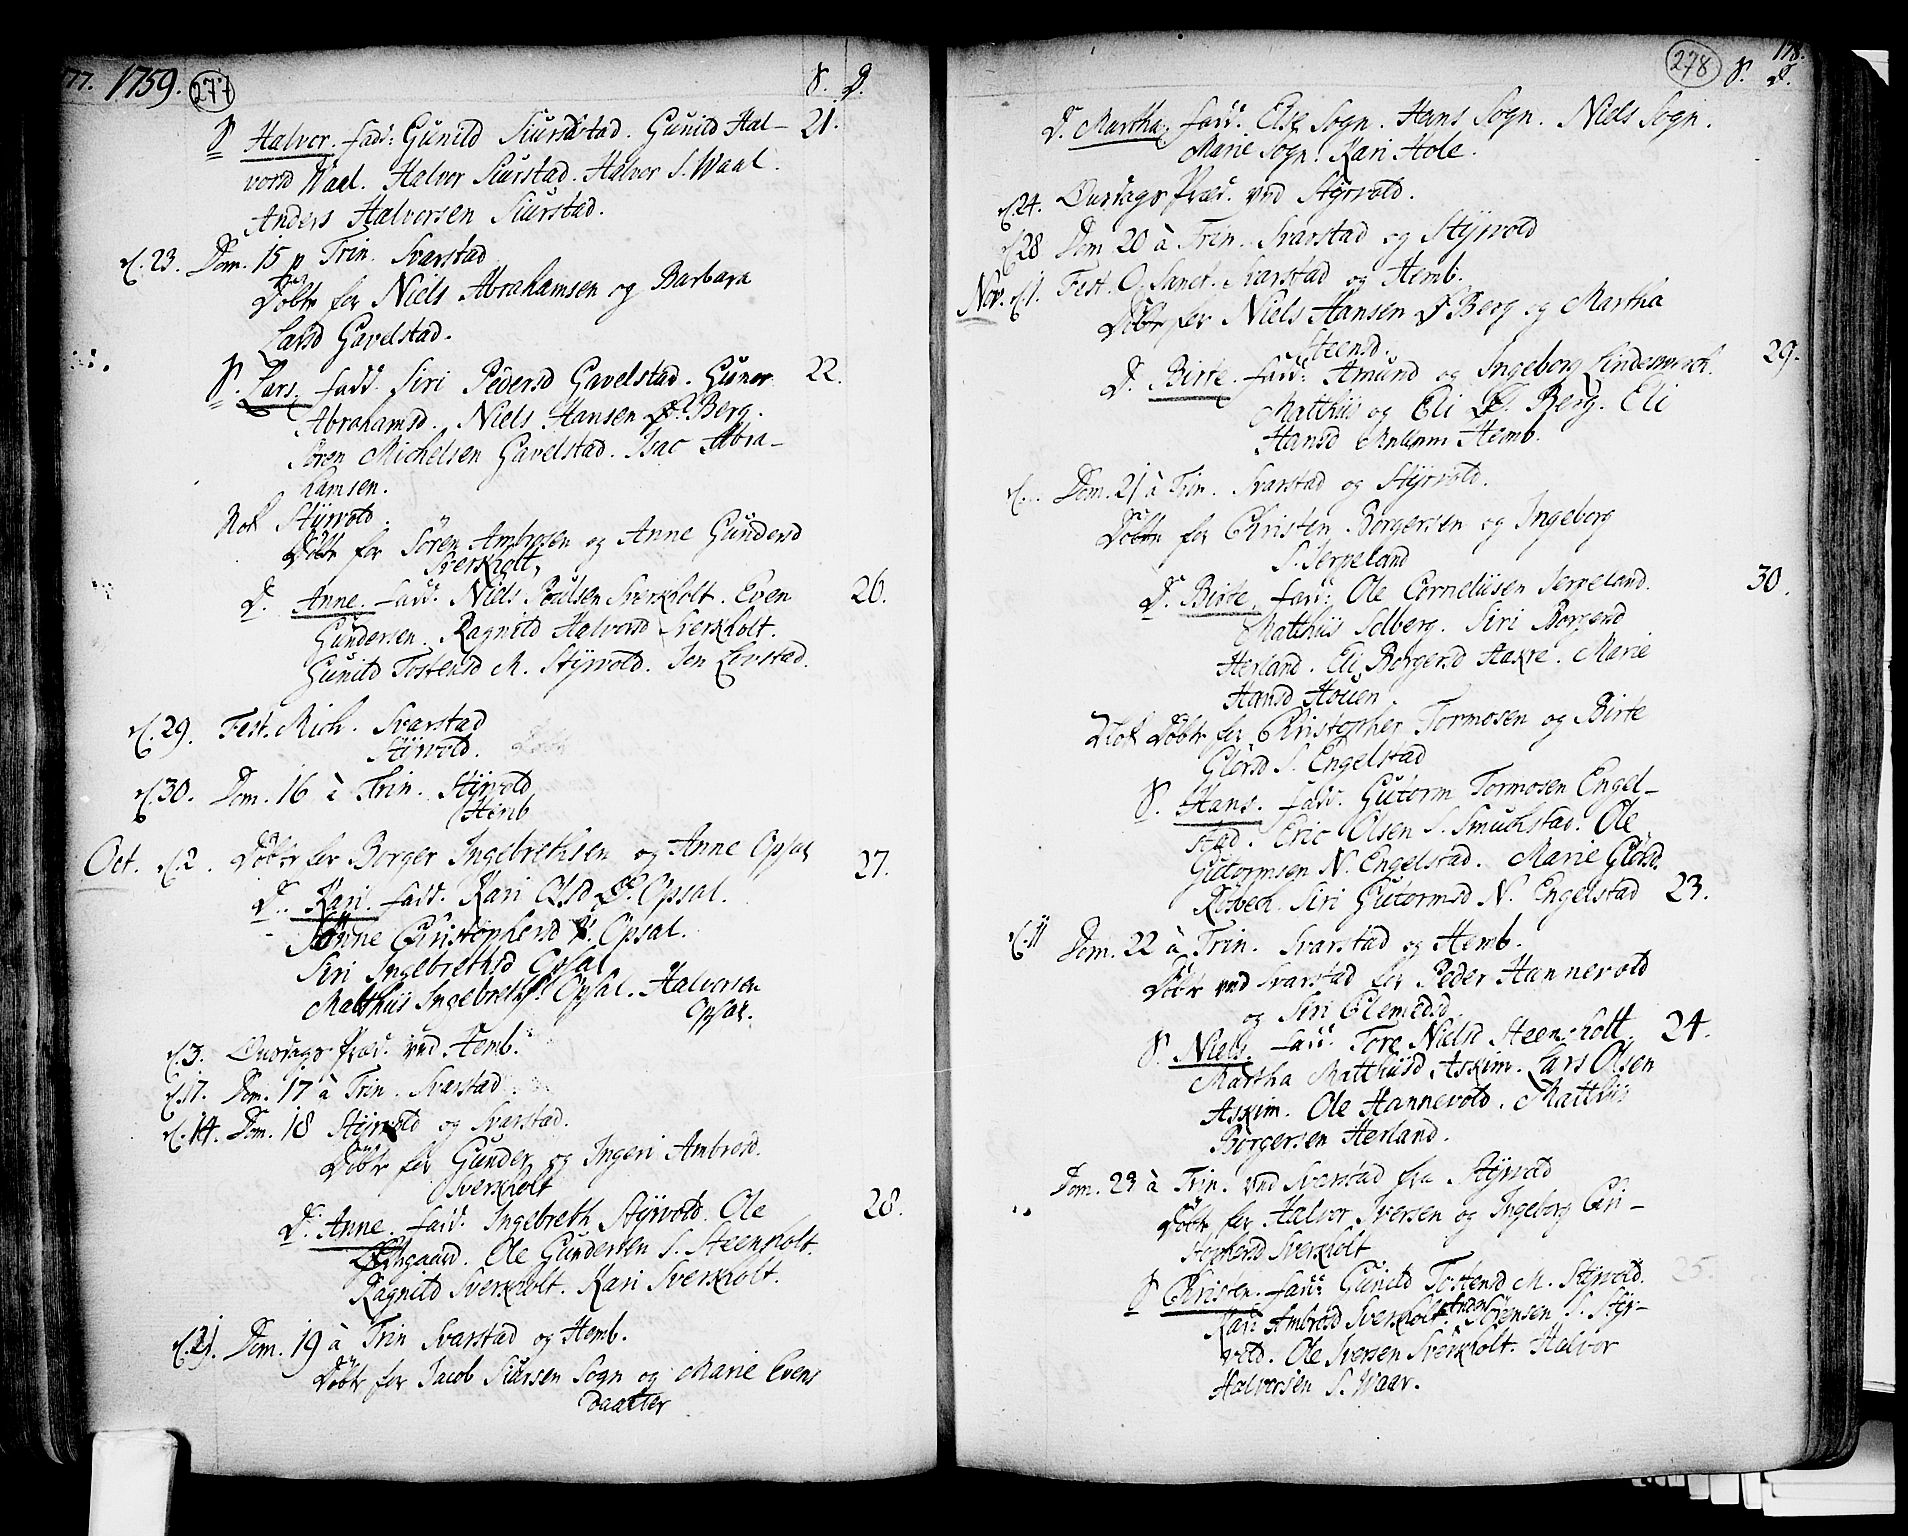 177. 1759. 277 S. D.
S Halvor. fadd: Gunild Siurdstad. Gunild Hal- 21.
vorsd Waal. Halvor Siurstad. Halvor S. Waal.
Anders Halvorsen Siurstad.
d. 23. Dom. 15 p Trin. Svarstad
Döbt for Niels Abrahamsen og Barbara
Larsd Gavelstad.
S. Lars. fadd. Siri Pedersd Gavelstad. Guner 22.
Abrahamsd. Niels Hansen D. Berg.
Sören Michelsen Gavelstad. Isac Abra-
hamsen.
Nok Styrvold.
Döbt for Sören Ambrosen og Anne Gundersd
Sverkholt,
D. Anne. fadd. Niels Poulsen Sverkholt. Even 26.
Gundersen. Ragnild Halvorsd Sverkholt.
Gunild Tostensd M. Styrvold. Jon Levstad.
d. 29. Fest. Mich. Svarstad
Styrvold.
d. 30. Dom. 16 à Trin. Styrvold
Hemb
Oct. d. 2. Döbt for Borger Ingebrethsen og Anne Opsal 27.
D. Kari. fadd. Kari Olsd D. Opsal.
Anne Christophersd N. Opsal.
Siri Ingebrethsd Opsal
Matthiis Ingebreths. Opsal. Halvorsen
Opsal.
d. 3. Onsdags Præd. ved Hemb.
d. 17. Dom. 17 à Trin. Svarstad
d. 14. Dom. 18 Styrvold og Svarstad.
Döbt for Gunder og Ingeri Ambrosd.
Sverkholt
D. Anne. fadd. Ingebreth Styrvold. Ole 28.
Ole Gundersen S. Steenholt.
Ragnild Sverkholt. Kari Sverkholt.
d. 21. Dom. 19 à Trin Svarstad og Hemb.
Döbt for Jacob Siursen Sogn og Marie Evens
Daatter
278 178. S. D.
D. Martha. fadd. Else Sogn. Hans Sogn. Niels Sogn.
Marie Sogn. Kari Hole.
d. 24. Onsdags Præd. ved Styrvold.
d. 28 Dom 20 à Trin. Svarstad og Styrvold
Nov. d. 1. Fest. O. Sanct. Svarstad og Hemb.
Döbt for Niels Hansen D Berg og Martha
Steensd.
D. Birte. fadd: Amund og Ingeborg Lindesmarch. 29.
Matthiis og Eli D. Berg. Eli
Hansd Hemb.
d. .. Dom. 21 à Trin. Svarstad og Styrvold.
Döbt for Christen Borgersen og Ingeborg
S. Serpeland
D. Birte. fadd: Ole Corneliisen Serpeland. 30.
Matthiis Solberg. Siri Borgersd
Herland. Eli Borgersd Haxre. Marie
Hansd Houen.
Nok Döbt for Christopher Tormosen og Birte
Glorsd S. Engelstad
S. Hans. fadd. Gutorm Tormosen Engel-
stad. Eric Olsen S. Smuchstad. Ole
Gutormsen N. Engelstad. Marie Glorsd.
Rösbech. Siri Gutormsd N. Engelstad 23.
d. 11 Dom. 22 à Trin. Svarstad og Hemb.
Döbt ved Svarstad for Peder Hannevold
og Siri Clemedsd
S. Niels. fadd. Tore Nielsd Steensholt. 24.
Martha Matthiisd Askim. Lars Olsen
Askim. Ole Hannevold. Matthiis
Borgersen Herland.
Dom. 23 à Trin. ved Svarstad fra Styrvold
Döbt for Halvor Iversen og Ingeborg Chri-
stophersd Sverkholt
S Christen. fadd: Gunild Tostensd M. Styrvold. 25.
Kari Ambrosd Sverkholt. Sörensen S. Styr-
vold. Ole Iversen Sverkholt. Halvor
Halvorsen S. Waal.